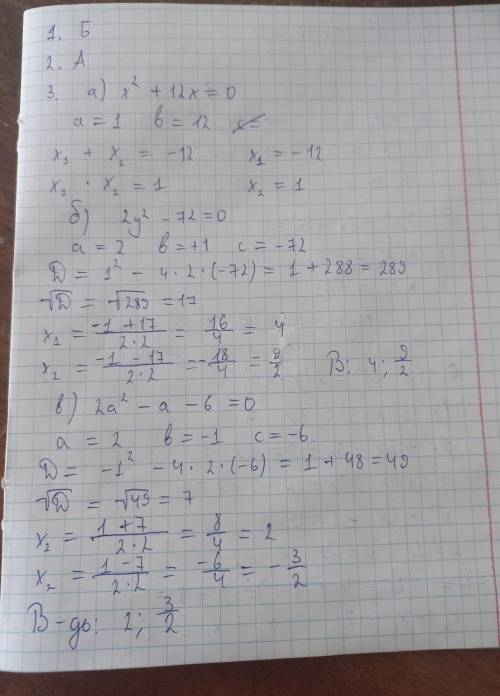 1. Б
2. А
3. а) x² + 12x = 0
a = 1 b = 12
x₁ + x₂ = -12 x₁ = -12
x₂ · x₂ = 1 x₂ = 1
б) 2y² - 72 = 0
a = 2 b = +1 c = -72
D = 1² - 4 · 2 · (-72) = 1 + 288 = 289
√D = √289 = 17
x₁ = (-1 + 17)/(2·2) = 16/4 = 4
x₂ = (-1 - 17)/(2·2) = -18/4 = 9/2 В: 4; 9/2
в) 2a² - a - 6 = 0
a = 2 b = -1 c = -6
D = -1² - 4 · 2 · (-6) = 1 + 48 = 49
√D = √49 = 7
x₂ = (1 + 7)/(2·2) = 8/4 = 2
x₂ = (1 - 7)/(2·2) = -6/4 = -3/2
В-дь: 2; 3/2